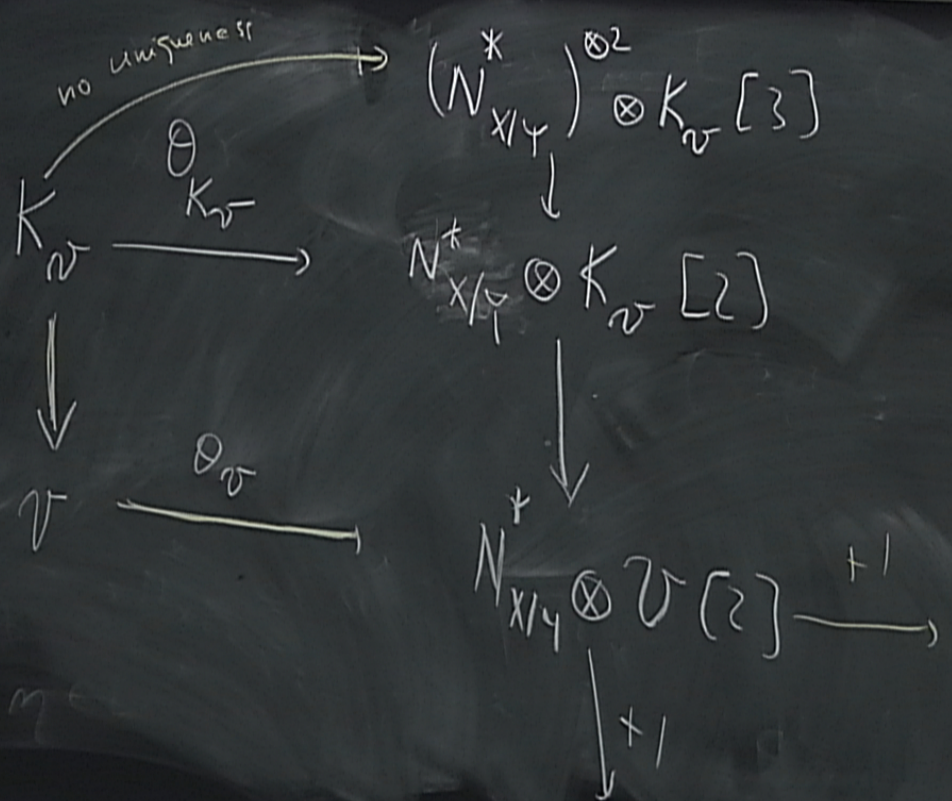 no uniqueness
(N*_{X/Y})^{⊗2} ⊗ K_v [3]
θ_{K_v}
K_v → N*_{X/Y} ⊗ K_v [2]
θ_v
v → N*_{X/Y} ⊗ v [2] +1
+1